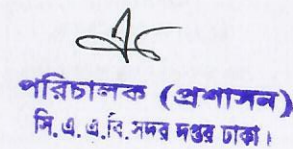 পরিচালক (প্রশাসন)
সি, এ, এ,বি, সদর দপ্তর ঢাকা।